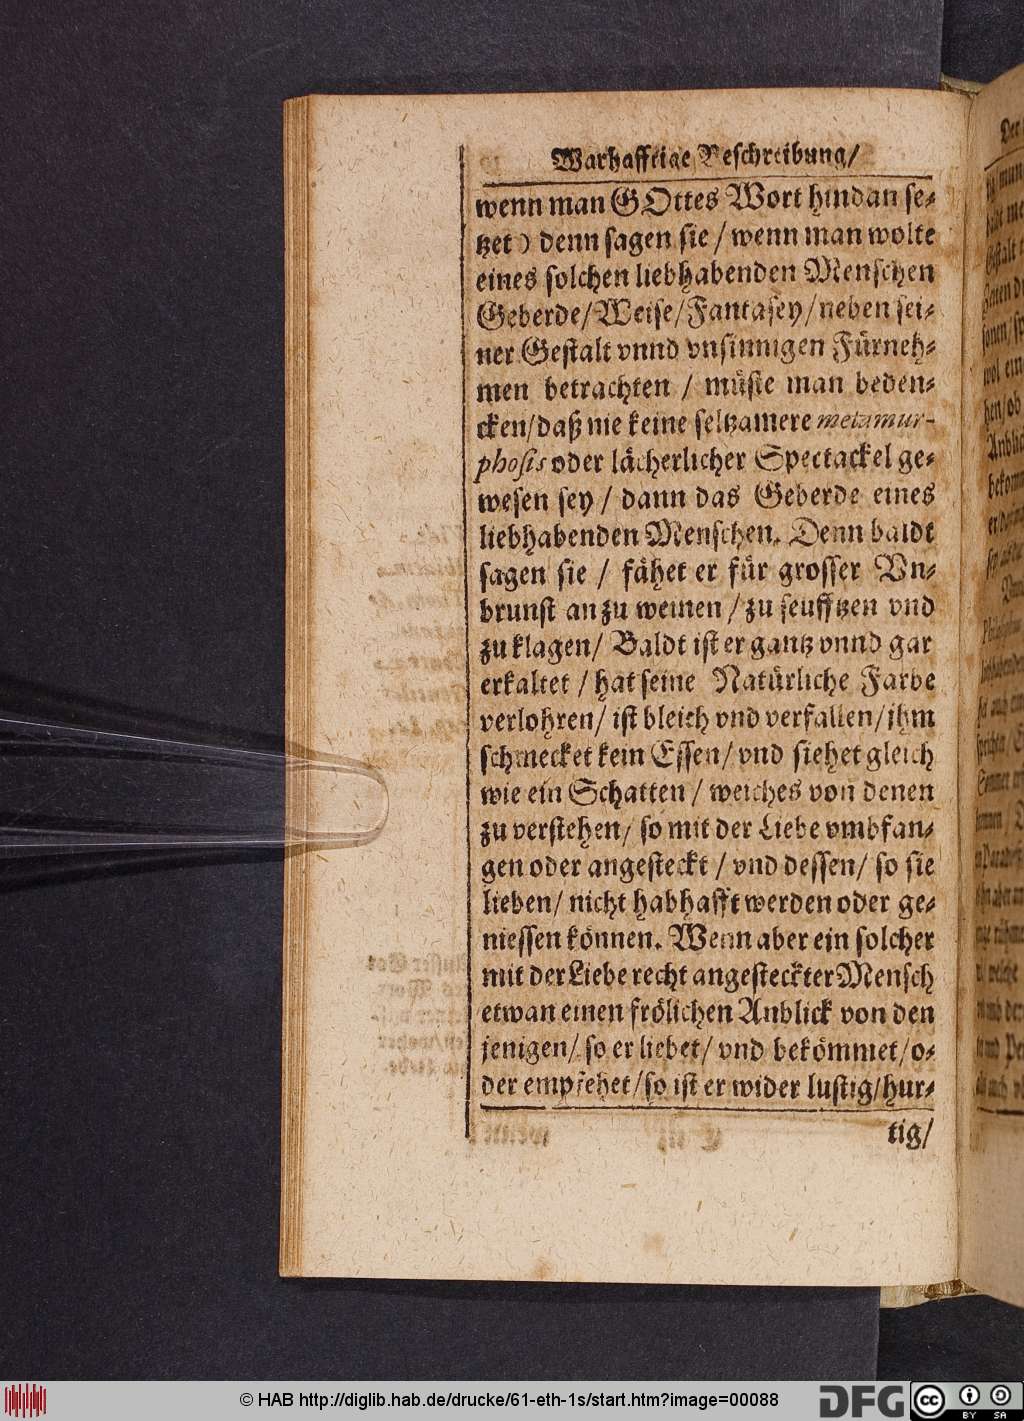 Warhafftige Beschreibung/
wenn man GOttes Wort hindan se⸗
tzet) denn sagen sie / wenn man wolte
eines solchen liebhabenden Menschen
Geberde/Weise/Fantasey/neben sei⸗
ner Gestalt vnnd vnsinnigen Fürneh⸗
men betrachten / müste man beden⸗
cken/daß nie keine seltzamere metamur-
phosis oder lächerlicher Spectackel ge⸗
wesen sey / dann das Geberde eines
liebhabenden Menschen. Denn baldt
sagen sie / fähet er für grosser Vn⸗
brunst an zu weinen / zu seufftzen vnd
zu klagen/ Baldt ist er gantz vnnd gar
erkaltet / hat seine Natürliche Farbe
verlohren/ ist bleich vnd verfallen/jhm
schmecket kein Essen/ vnd siehet gleich
wie ein Schatten / welches von denen
zu verstehen/ so mit der Liebe vmbfan⸗
gen oder angesteckt / vnd dessen/ so sie
lieben/ nicht habhafft werden oder ge⸗
niessen können. Wenn aber ein solcher
mit der Liebe recht angesteckter Mensch
etwan einen frölichen Anblick von den
jenigen/ so er liebet/ vnd bekömmet/o⸗
der empfehet/so ist er wider lustig/hur⸗
tig/
© HAB http://diglib.hab.de/drucke/61-eth-1s/start.htm?image=00088
DFG
cc
BY SA